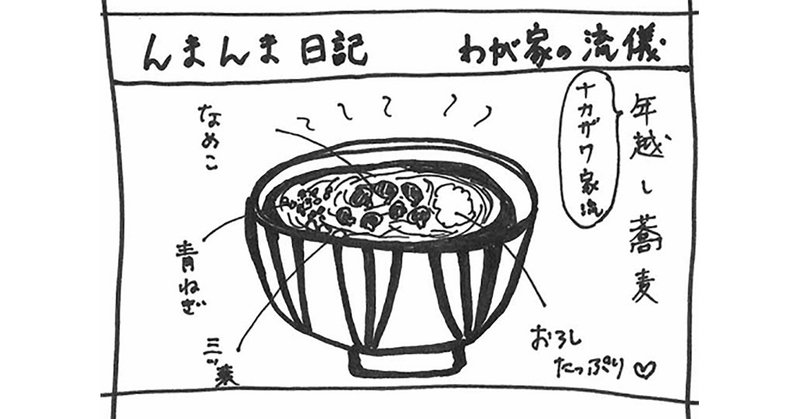 んまんま日記 わが家の流儀
年越し蕎麦
ナカガワ家流
なめこ
青ねぎ
三ッ葉
おろし
たっぷり♡